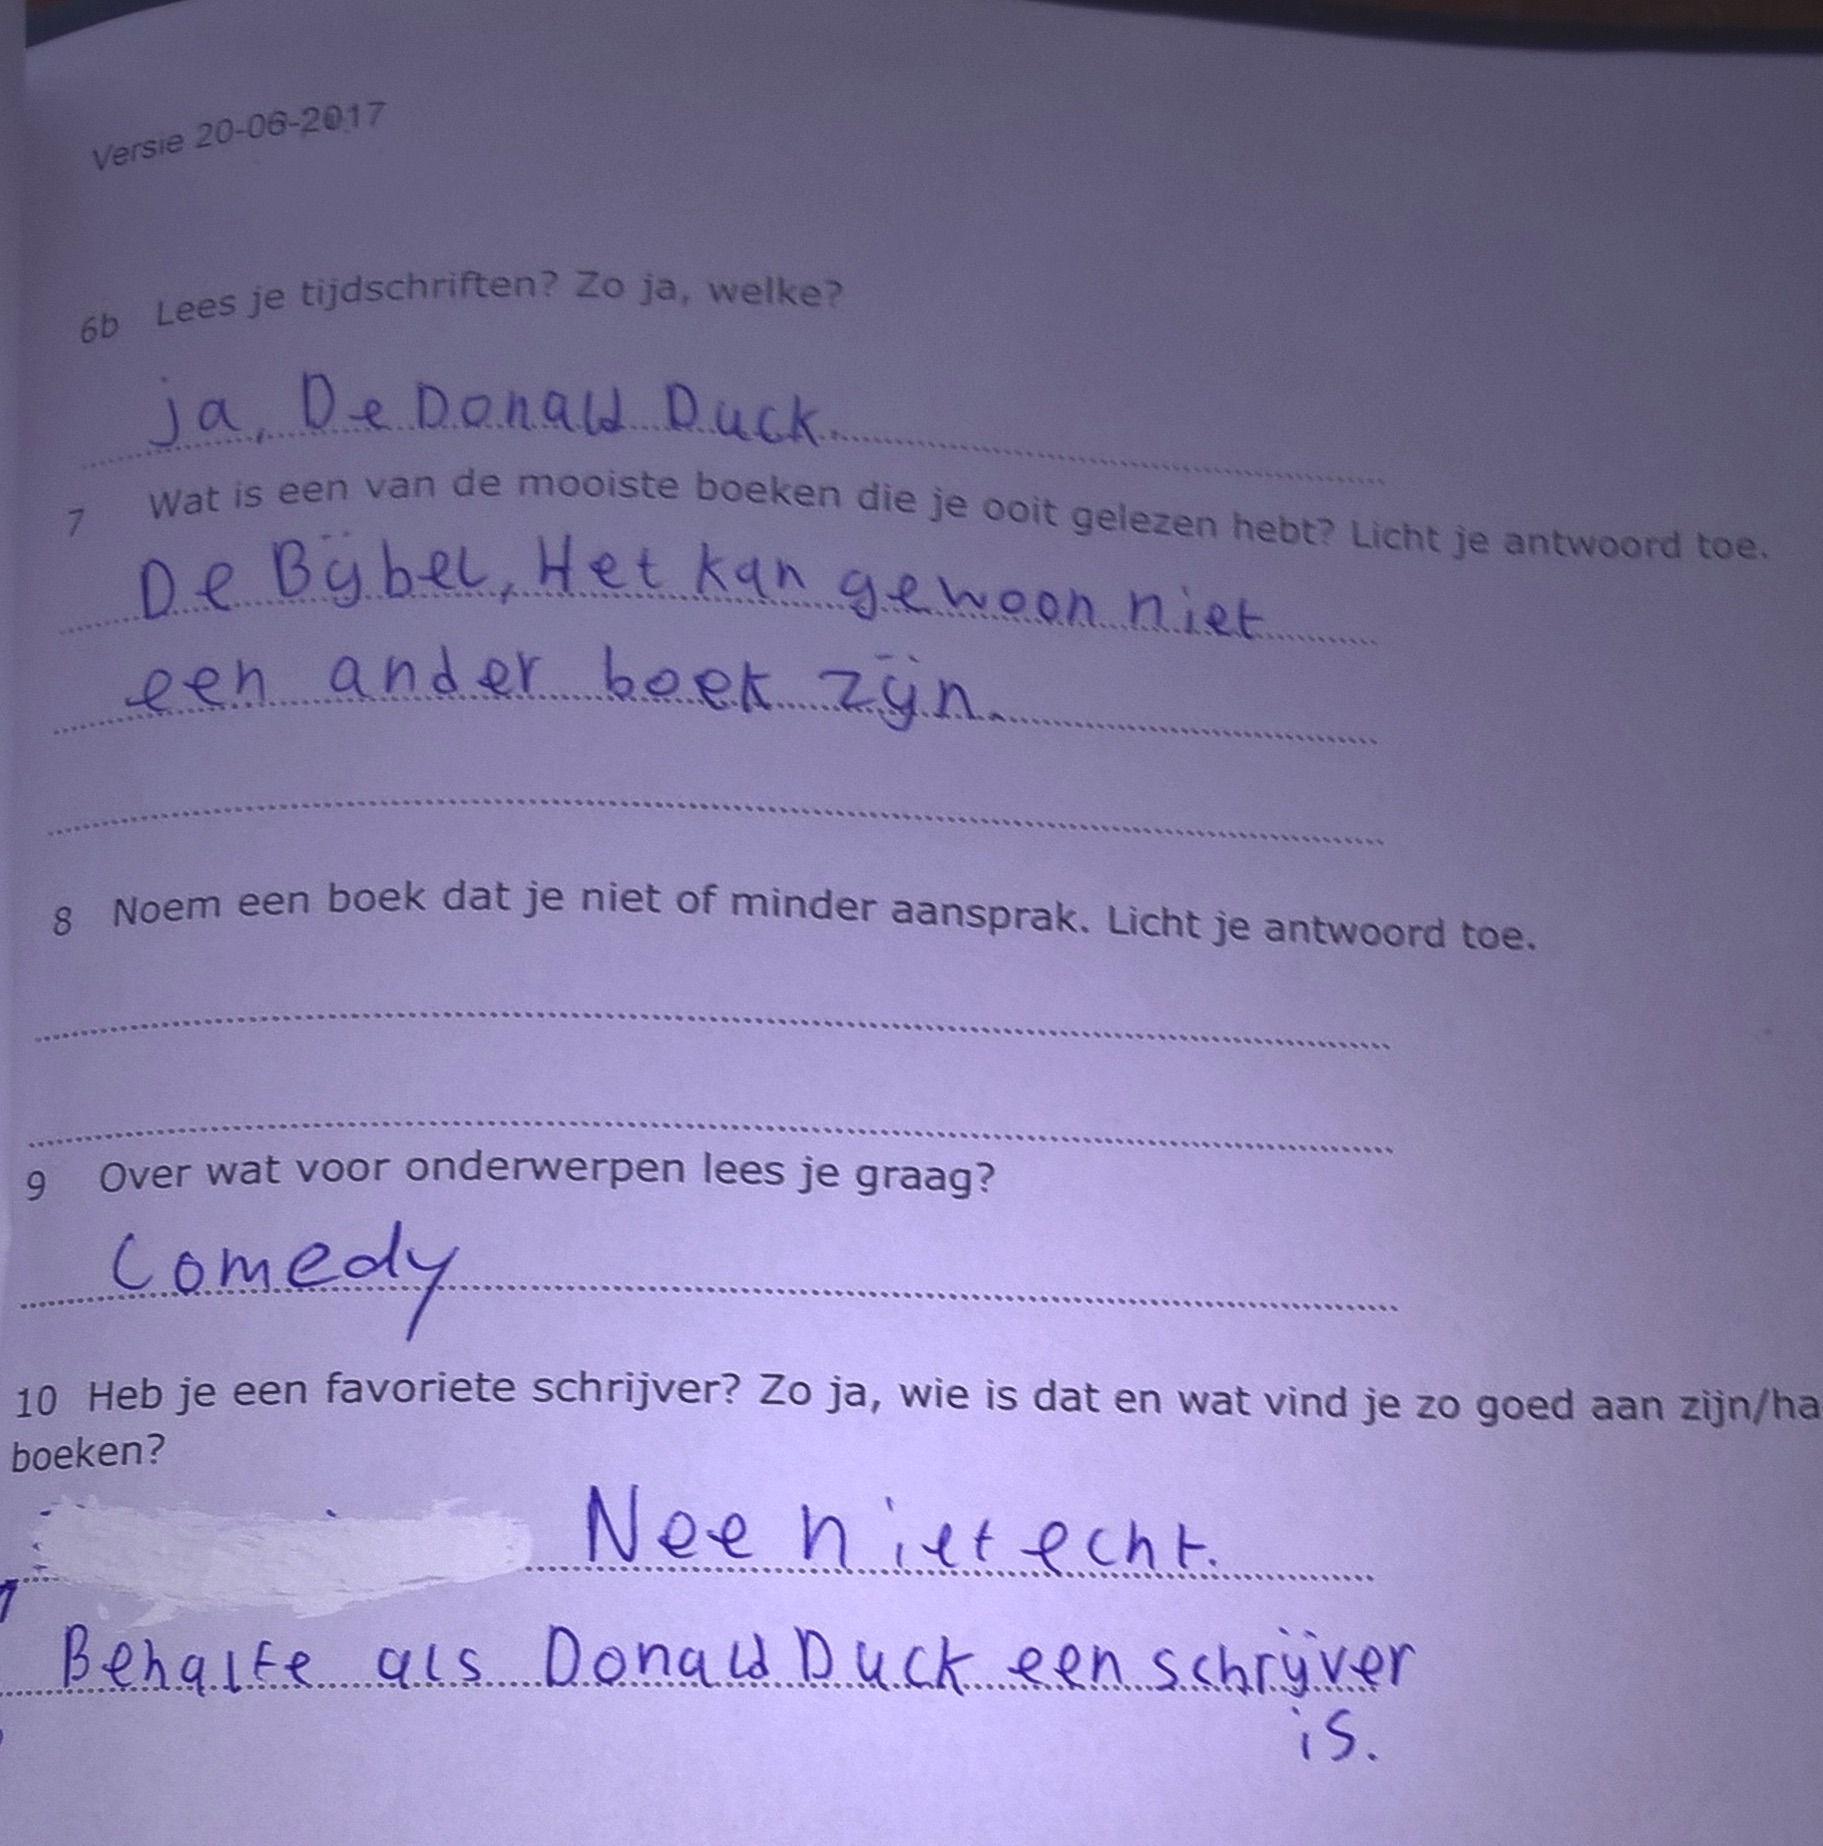 Versie 20-06-2017
6b Lees je tijdschriften? Zo ja, welke?
ja, De Donald Duck.
7 Wat is een van de mooiste boeken die je ooit gelezen hebt? Licht je antwoord toe.
De Bijbel, Het kan gewoon niet
een ander boek zijn.
8 Noem een boek dat je niet of minder aansprak. Licht je antwoord toe.
9 Over wat voor onderwerpen lees je graag?
Comedy
10 Heb je een favoriete schrijver? Zo ja, wie is dat en wat vind je zo goed aan zijn/ha
boeken?
Nee niet echt.
Behalfe als Donald Duck een schrijver
is.